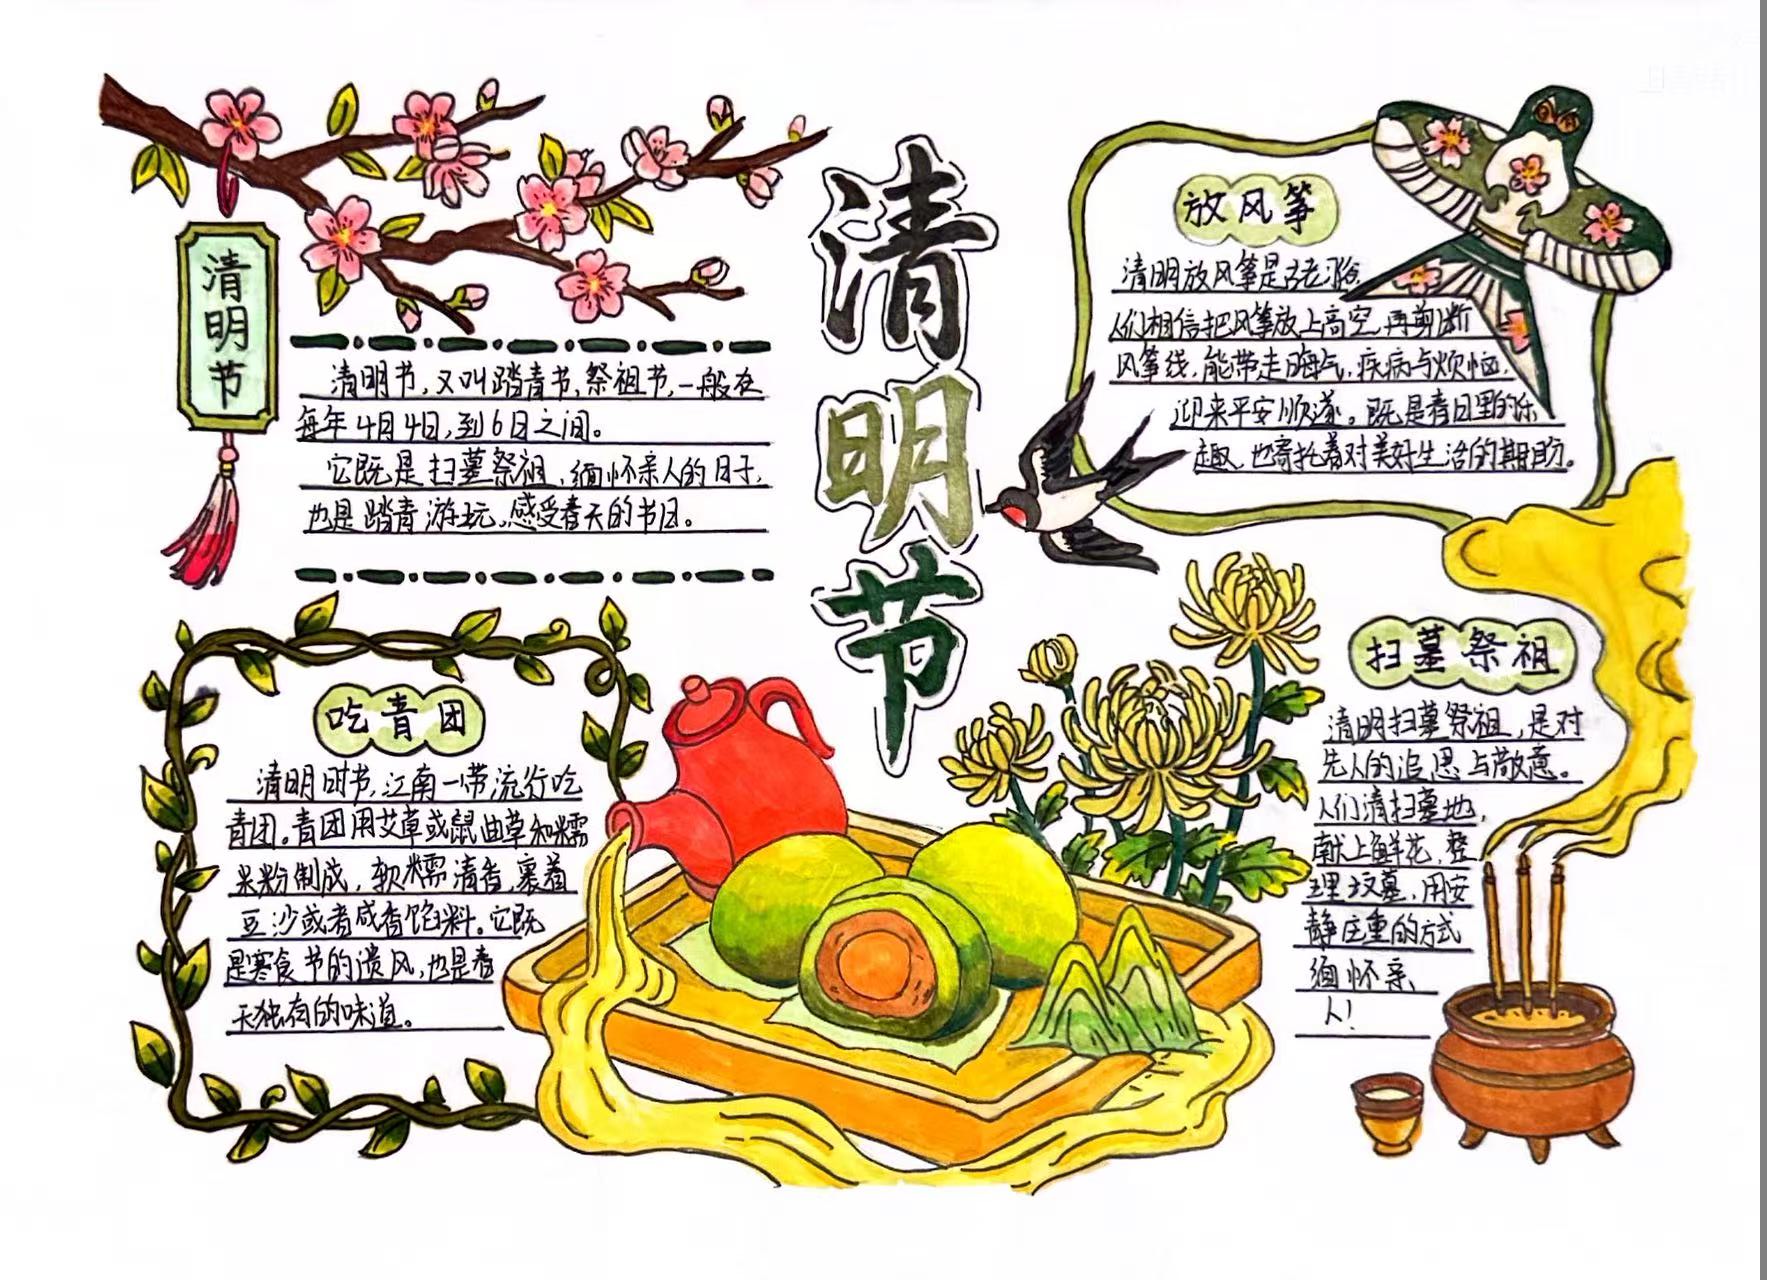 清明节
清明节
清明节，又叫踏青节，祭祖节，一般在
每年4月4日，到6日之间。
它既是扫墓祭祖，缅怀亲人的日子，
也是踏青游玩，感受春天的节日。
放风筝
清明放风筝是
人们相信把风筝放上高空，再剪断
风筝线，能带走晦气，疾病与烦恼，
迎来平安顺遂。既是春日里的乐
趣，也寄托着对美好生活的期盼。
吃青团
清明时节，江南一带流行吃
青团。青团用艾草或鼠曲草和糯
米粉制成，软糯清香，裹着
豆沙或者咸香馅料。它既
是寒食节的遗风，也是春
天独有的味道。
扫墓祭祖
清明扫墓祭祖，是对
先人的追思与敬意。
人们清扫墓地，
献上鲜花，整
理坟墓，用安
静庄重的方式
缅怀亲
人！